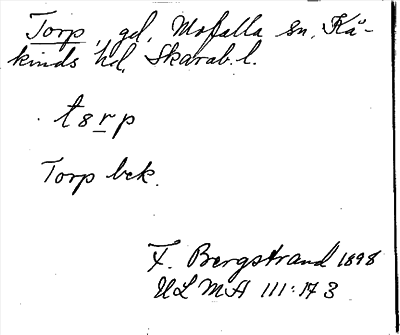 Torp, gd, Mofalla sn, Kå-
kinds hd, Skarab. l.
t8rp
Torp bek.
F. Bergstrand 1898
ULMA 111:17 3